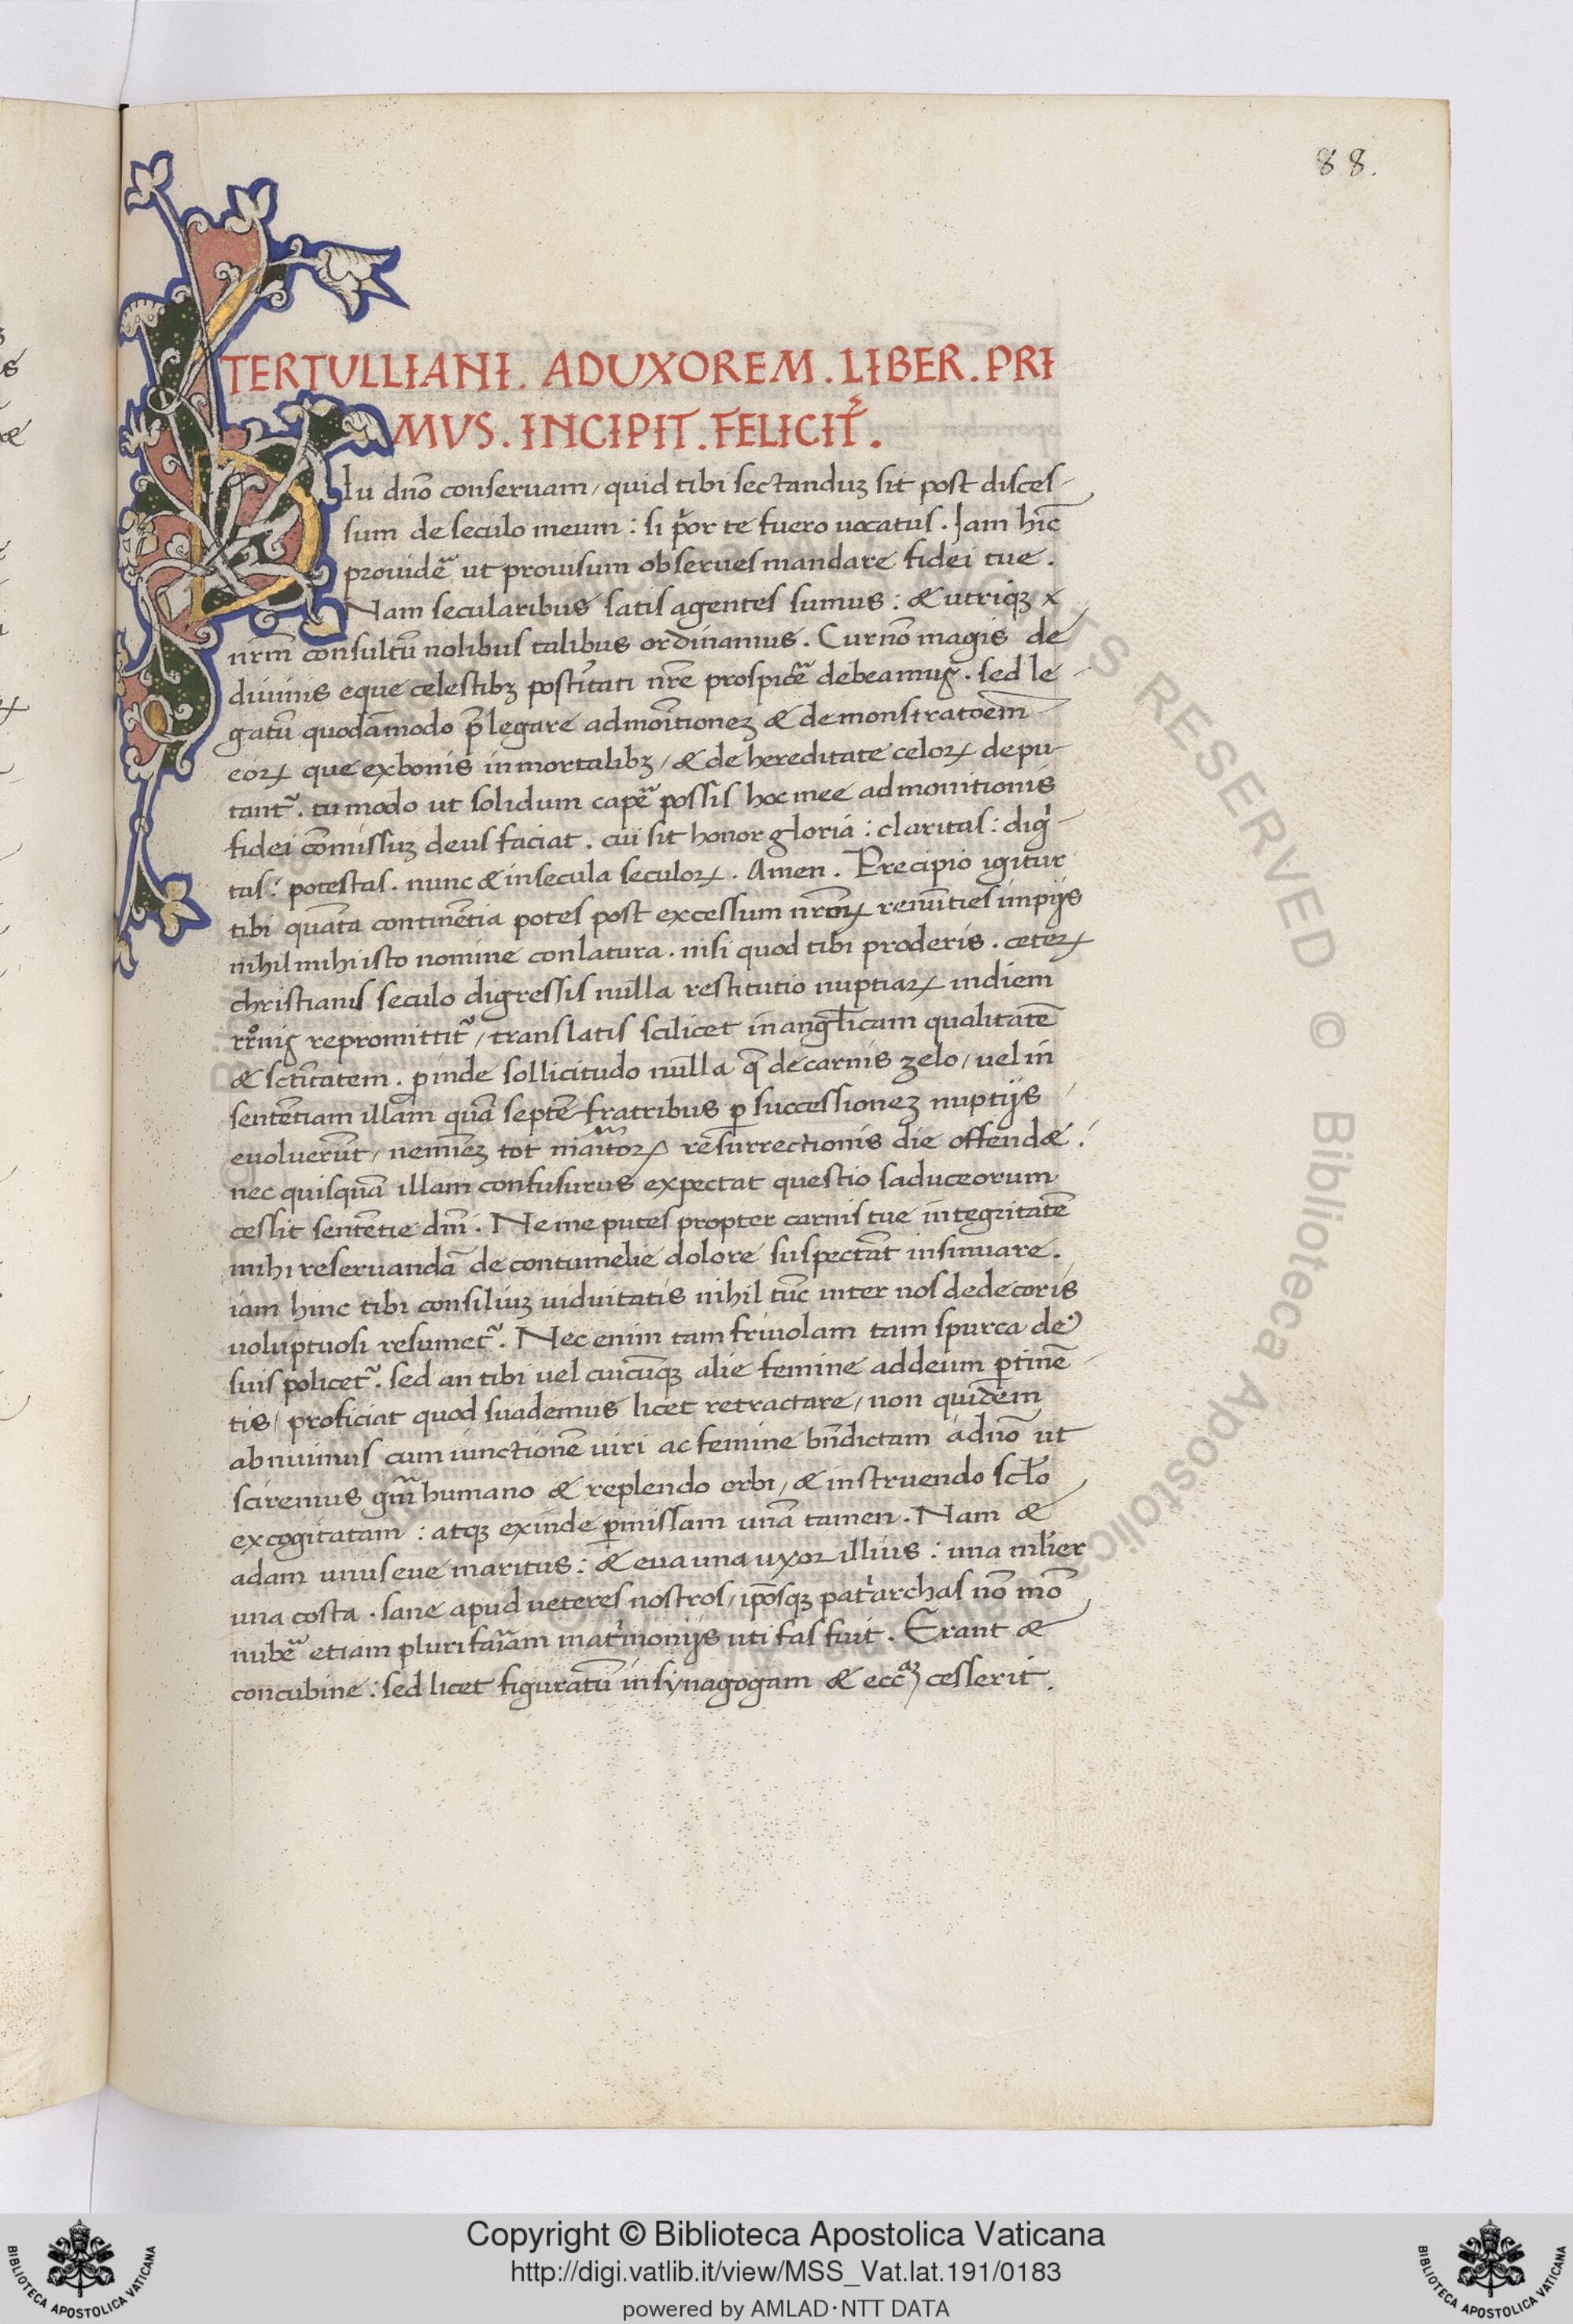 88.
TERTULLIANI. AD UXOREM. LIBER. PRI
MVS. INCIPIT. FELICIT̃.
lu dño conseruam, quid tibi sectanduꝫ sit post disces-
sum de seculo meum : si p̓or te fuero uocatus. Jam hic̄
prouidẽ ut prouisum obserues mandare fidei tue.
Nam secularibus satis agentes sumus : & utriqꝫ x
nrm̃ consultũ nolibus talibus ordinamus. Cur nõ magis de
diuinis eque celestibꝫ postit̃ati nr̃e prospicẽ debeamuꝰ. sed le-
gatũ quodãmodo p̃legare admoĩtioneꝫ & demonstratoẽm
eoꝝ que ex bonis inmortalibꝫ, & de hereditate celoꝝ depu-
tant᷑. tu modo ut solidum capẽ possis hoc mee admonitionis
fidei cõmissuꝫ deus faciat. cui sit honor gloria : claritas : dig̓-
tas : potestas. nunc & in secula seculoꝝ. Amen. Precipio igitur
tibi quãta continẽtia potes post excessum nrm̃ renũties impijs
nihil mihi isto nomine conlatura. nisi quod tibi proderis. ceteꝝ
christianis seculo digressis nulla restitutio nuptiaꝝ in diem
rr̃nis repromittit᷑, translatis scilicet in angl̃icam qualitatẽ
& sc̃titatem. ꝑinde sollicitudo nulla q̃ de carnis zelo, uel in
sentẽtiam illam quã septẽ fratribus ꝑ successioneꝫ nuptijs
euoluerũt, nemieꝫ tot maritoꝝ resurrectionis die offend& :
nec quisquã illam confusurus expectat questio saduceorum
cessit sentẽtie dñi. Ne me putes propter carnis tue integritatẽ
mihi reseruandã de contumelie dolore suspectãt insinuare.
iam hinc tibi consiliuꝫ uiduitatis nihil tũc inter nos dedecoris
uoluptuosi resumet᷑. Nec enim tam friuolam tam spurca de
suis policet᷑. sed an tibi uel cuicũqꝫ alie femine ad deum ꝑtinẽ-
tis, proficiat quod suademus licet retractare, non quidẽm
abnuimus cum iunctionẽ uiri ac femine bñdictam a dño ut
sciremus gñi humano & replendo orbi, & instruendo scl̃o
excogitatam : atqꝫ exinde ꝑmissam unã tamen. Nam &
adam unus eue maritus : & eua una uxor illius : una ml̃ier
una costa. sane apud ueteres nostros, ip̃osqꝫ pat̓archas nõ mõ
nubẽ etiam plurifaĩam mat̓monijs uti fas fuit. Erant &
concubine : sed licet figuratũ in synagogam & ecc̃aꝫ cesserit.
Copyright © Biblioteca Apostolica Vaticana
http://digi.vatlib.it/view/MSS_Vat.lat.191/0183
powered by AMLAD·NTT DATA